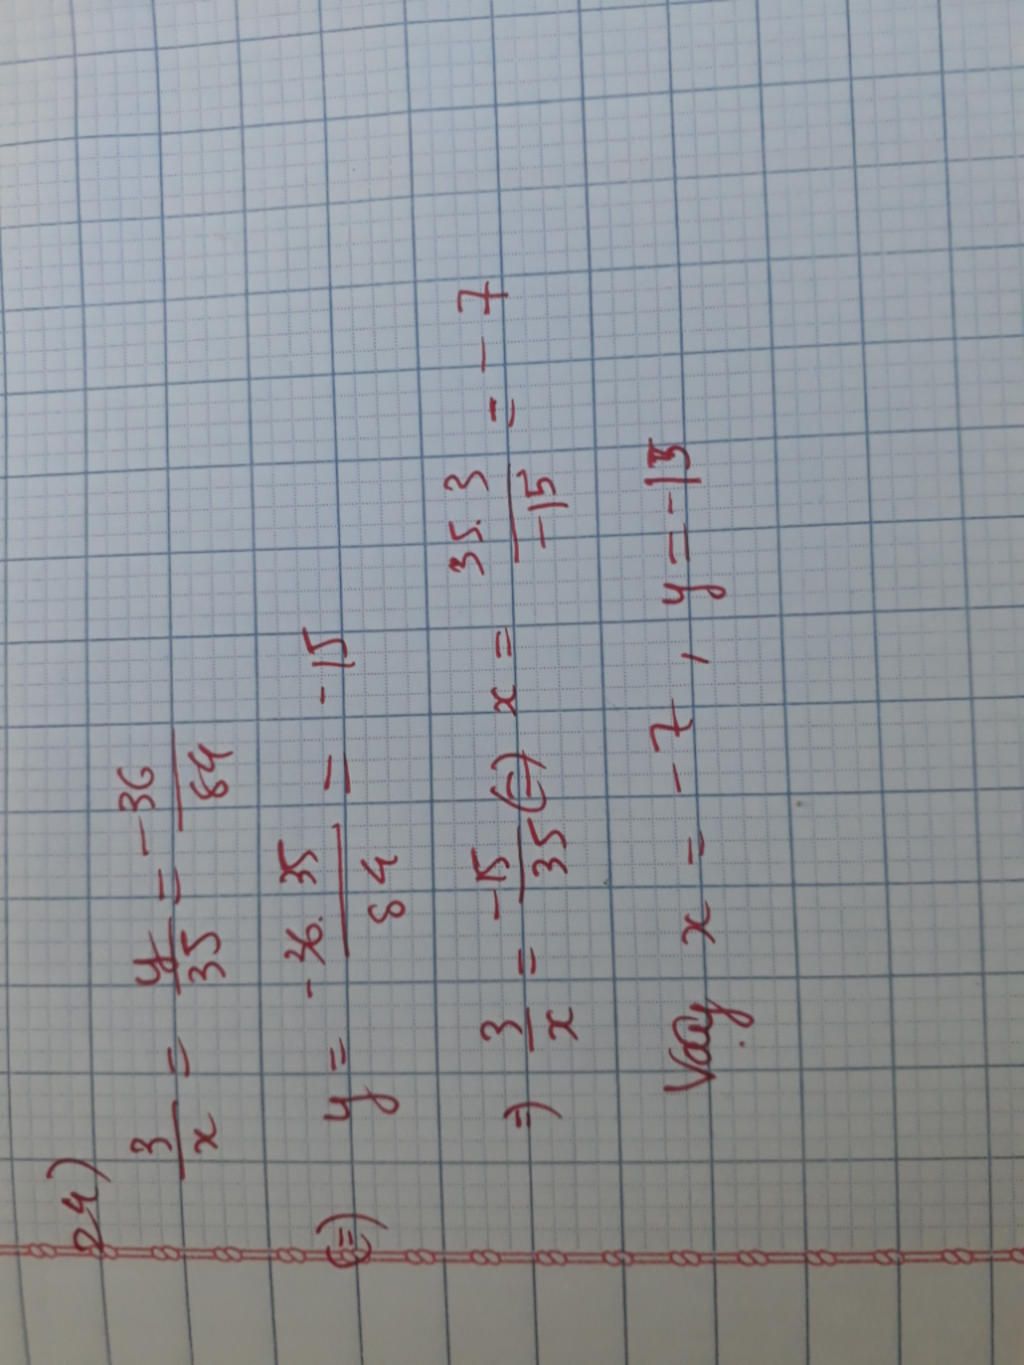 24)
3/x = y/35 = -36/84
(=) y = -36.35/84 = -15
=) 3/x = -15/35 (=) x = 35.3/-15 = -7
Vậy x = -7, y = -15